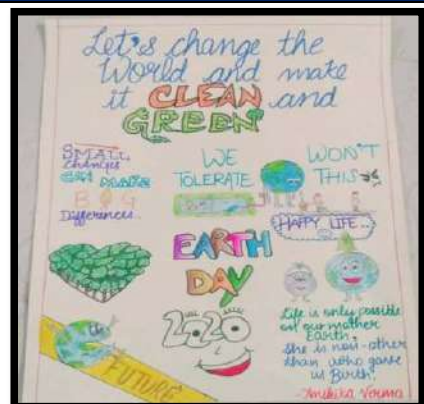 Let's change the
World and make
it CLEAN and
GREEN
SMALL
changes
can make
BIG
Differences..
WE
TOLERATE
WON'T
THIS
EARTH
DAY
2020
HAPPY LIFE...
FUTURE
Life is only possible
on our mother
Earth,
She is non-other
than who gave
us Birth.
-Anshika Verma